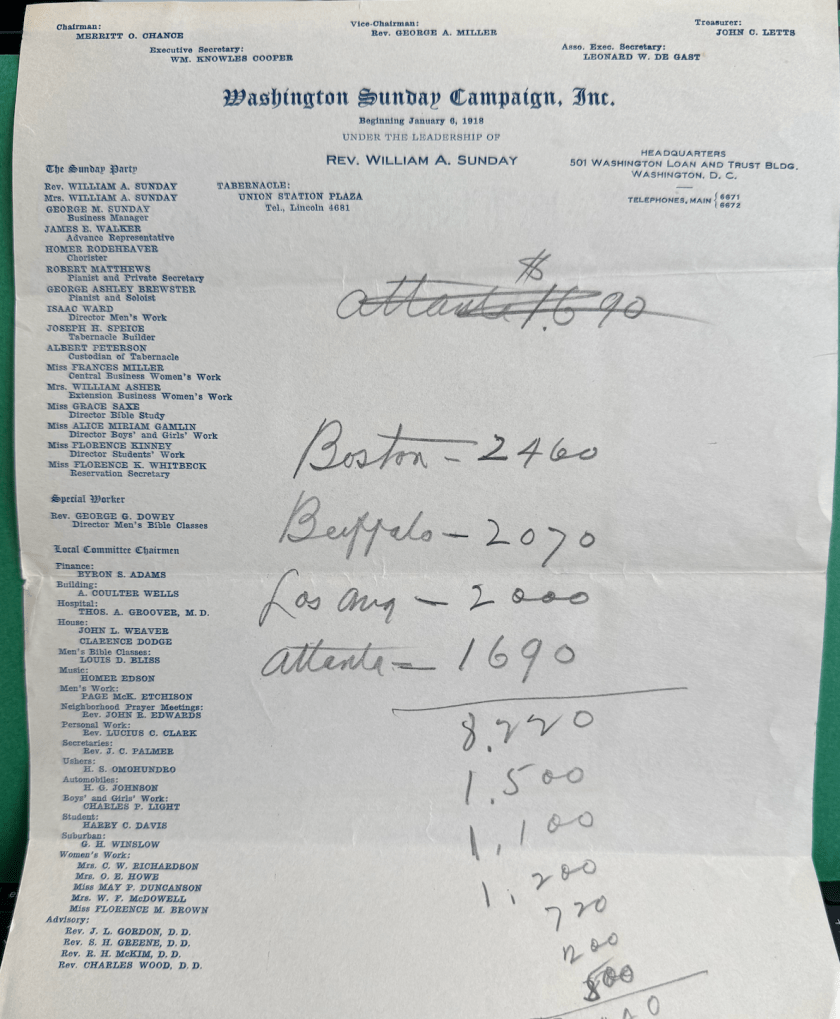 Chairman:
MERRITT O. CHANCE
Vice-Chairman:
Rev. GEORGE A. MILLER
Treasurer:
JOHN C. LETTS
Executive Secretary:
WM. KNOWLES COOPER
Asso. Exec. Secretary:
LEONARD W. DE GAST
Washington Sunday Campaign, Inc.
Beginning January 6, 1918
UNDER THE LEADERSHIP OF
REV. WILLIAM A. SUNDAY
HEADQUARTERS
501 WASHINGTON LOAN AND TRUST BLDG.
WASHINGTON, D. C.
TELEPHONES, MAIN { 6671
6672
TABERNACLE:
UNION STATION PLAZA
Tel., Lincoln 4681
The Sunday Party
Rev. WILLIAM A. SUNDAY
Mrs. WILLIAM A. SUNDAY
GEORGE M. SUNDAY
Business Manager
JAMES E. WALKER
Advance Representative
HOMER RODEHEAVER
Chorister
ROBERT MATTHEWS
Pianist and Private Secretary
GEORGE ASHLEY BREWSTER
Pianist and Soloist
ISAAC WARD
Director Men's Work
JOSEPH H. SPEICE
Tabernacle Builder
ALBERT PETERSON
Custodian of Tabernacle
Miss FRANCES MILLER
Central Business Women's Work
Mrs. WILLIAM ASHER
Extension Business Women's Work
Miss GRACE SAXE
Director Bible Study
Miss ALICE MIRIAM GAMLIN
Director Boys' and Girls' Work
Miss FLORENCE KINNEY
Director Students' Work
Miss FLORENCE K. WHITBECK
Reservation Secretary
Special Worker
Rev. GEORGE G. DOWEY
Director Men's Bible Classes
Local Committee Chairmen
Finance:
BYRON S. ADAMS
Building:
A. COULTER WELLS
Hospital:
THOS. A. GROOVER, M. D.
House:
JOHN L. WEAVER
CLARENCE DODGE
Men's Bible Classes:
LOUIS D. BLISS
Music:
HOMER EDSON
Men's Work:
PAGE McK. ETCHISON
Neighborhood Prayer Meetings:
Rev. JOHN R. EDWARDS
Personal Work:
Rev. LUCIUS C. CLARK
Secretaries:
Rev. J. C. PALMER
Ushers:
H. S. OMOHUNDRO
Automobiles:
H. G. JOHNSON
Boys' and Girls' Work:
CHARLES P. LIGHT
Student:
HARRY C. DAVIS
Suburban:
G. H. WINSLOW
Women's Work:
Mrs. C. W. RICHARDSON
Mrs. O. E. HOWE
Miss MAY P. DUNCANSON
Mrs. W. F. McDOWELL
Miss FLORENCE M. BROWN
Advisory:
Rev. J. L. GORDON, D. D.
Rev. S. H. GREENE, D. D.
Rev. R. H. McKIM, D. D.
Rev. CHARLES WOOD, D. D.
$
Atlanta 1.690
Boston - 2460
Buffalo - 2070
Los Ang - 2000
Atlanta - 1690
8.220
1.500
1,100
1,200
720
200